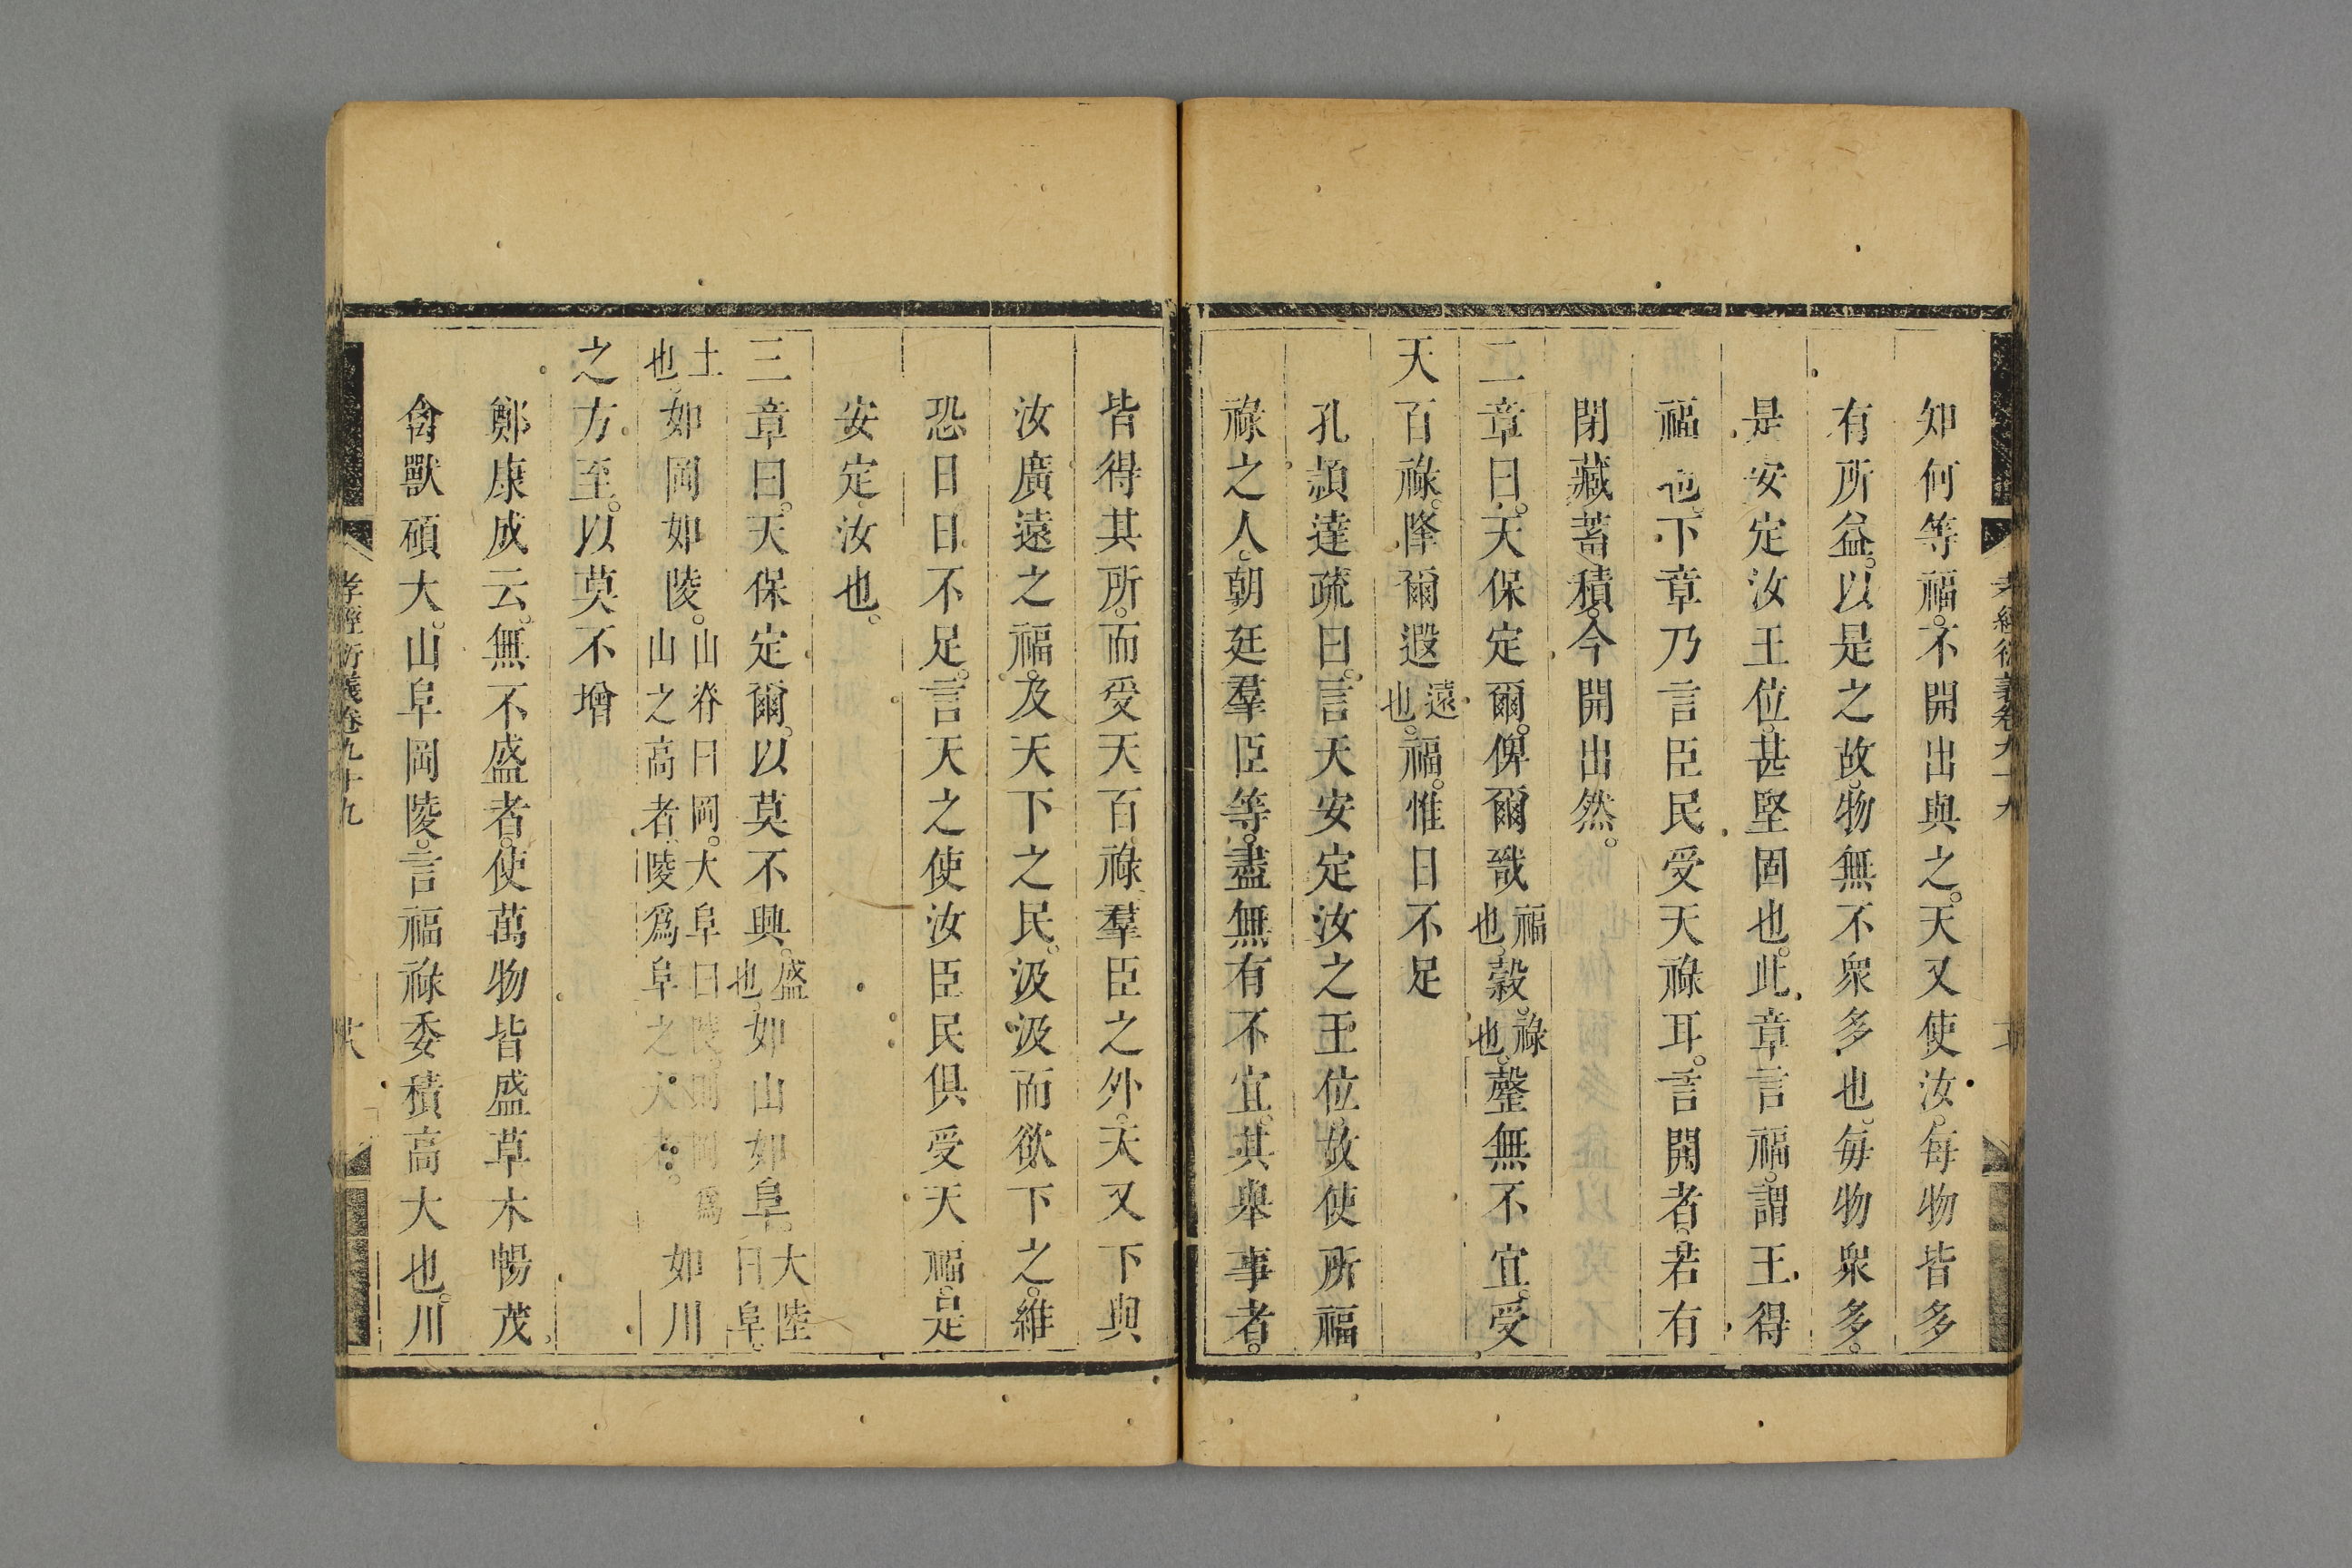 知何等福。不開出與之。天又使汝。每物皆多
有所益。以是之故。物無不衆多也。每物衆多。
是安定汝王位。甚堅固也。此章言福。謂王得
福也。下章乃言臣民受天祿耳。言開者。若有
閉藏蓄積。今開出然。
二章曰。天保定爾。俾爾戩福也。穀。祿也。罄無不宜。受
天百祿。降爾遐遠也。福。惟日不足
孔頴達疏曰。言天安定汝之王位。故使所福
祿之人。朝廷羣臣等。盡無有不宜。其舉事者。
皆得其所。而受天百祿。羣臣之外。天又下與
汝廣遠之福。及天下之民。汲汲而欲下之。維
恐日日不足。言天之使汝臣民俱受天福。是
安定汝也。
三章曰。天保定爾。以莫不興。盛也。如山如阜。大陸曰阜。
土也。如岡如陵。山脊曰岡。大阜曰陵。則岡爲山之高者。陵爲阜之大者。如川
之方至。以莫不增
鄭康成云。無不盛者。使萬物皆盛草木暢茂。
禽獸碩大。山阜岡陵。言福祿委積高大也。川
孝經衍義卷九十九